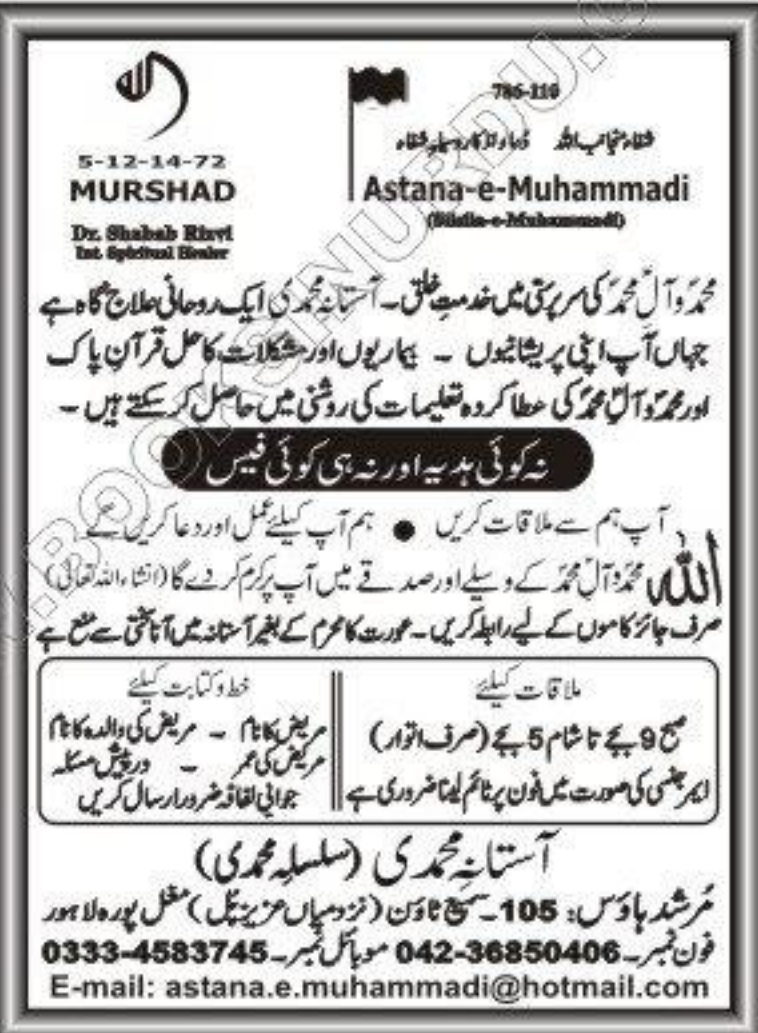 786-110
شفاء منجانب اللہ    دُعا و اذکار وسیلہِ شفاء
Astana-e-Muhammadi
(Silsila-e-Muhammadi)
اللہ
5-12-14-72
MURSHAD
Dr. Shabab Rizvi
Int. Spiritual Healer
محمدؐ و آلِ محمدؐ کی سرپرستی میں خدمتِ خلق۔ آستانہ محمدی ایک روحانی علاج گاہ ہے
جہاں آپ اپنی پریشانیوں ۔ بیماریوں اور مشکلات کا حل قرآنِ پاک
اور محمدؐ و آلِ محمدؐ کی عطا کردہ تعلیمات کی روشنی میں حاصل کر سکتے ہیں ۔
نہ کوئی ہدیہ اور نہ ہی کوئی فیس
آپ ہم سے ملاقات کریں ● ہم آپ کیلئے عمل اور دعا کریں گے
اللہ محمدؐ و آلِ محمدؐ کے وسیلے اور صدقے میں آپ پر کرم کر دے گا (انشاء اللہ تعالٰی)
صرف جائز کاموں کے لیے رابطہ کریں۔ عورت کا محرم کے بغیر آستانہ میں آنا سختی سے منع ہے
ملاقات کیلئے
صبح 9 بجے تا شام 5 بجے (صرف اتوار)
ایمرجنسی کی صورت میں فون پر ٹائم لینا ضروری ہے
خط و کتابت کیلئے
مریض کا نام ۔ مریض کی والدہ کا نام
مریض کی عمر ۔ درپیش مسئلہ
جوابی لفافہ ضرور ارسال کریں
آستانہِ محمدی (سلسلہ محمدی)
مُرشد ہاؤس: 105۔ سمیع ٹاؤن (نزد میاں عزیز پُل) مغل پورہ لاہور
فون نمبر۔ 042-36850406 موبائل نمبر۔ 0333-4583745
E-mail: astana.e.muhammadi@hotmail.com